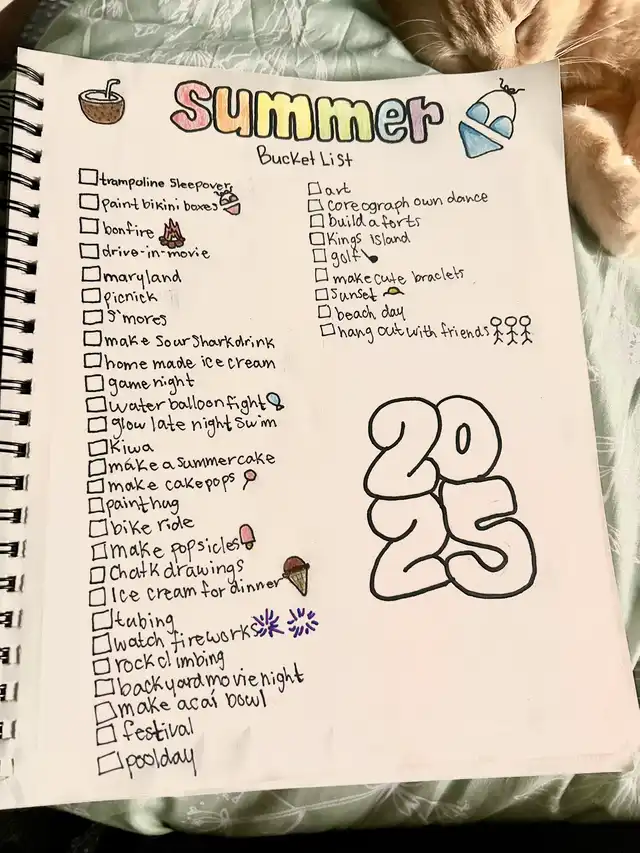 Summer
Bucket List
trampoline Sleepover
paint bikini boxes
bonfire
drive-in-movie
maryland
picnick
S'mores
make Sour Shark drink
home made ice cream
game night
water balloon fight
glow late night swim
Kiwa
make a summer cake
make cakepops
paint hug
bike ride
make popsicles
Chalk drawings
Ice cream for dinner
tubing
watch fireworks
rock climbing
backyard movie night
make acaí bowl
festival
poolday
art
coreograph own dance
build a forts
Kings Island
golf
make cute braclets
Sunset
beach day
hang out with friends
20
25